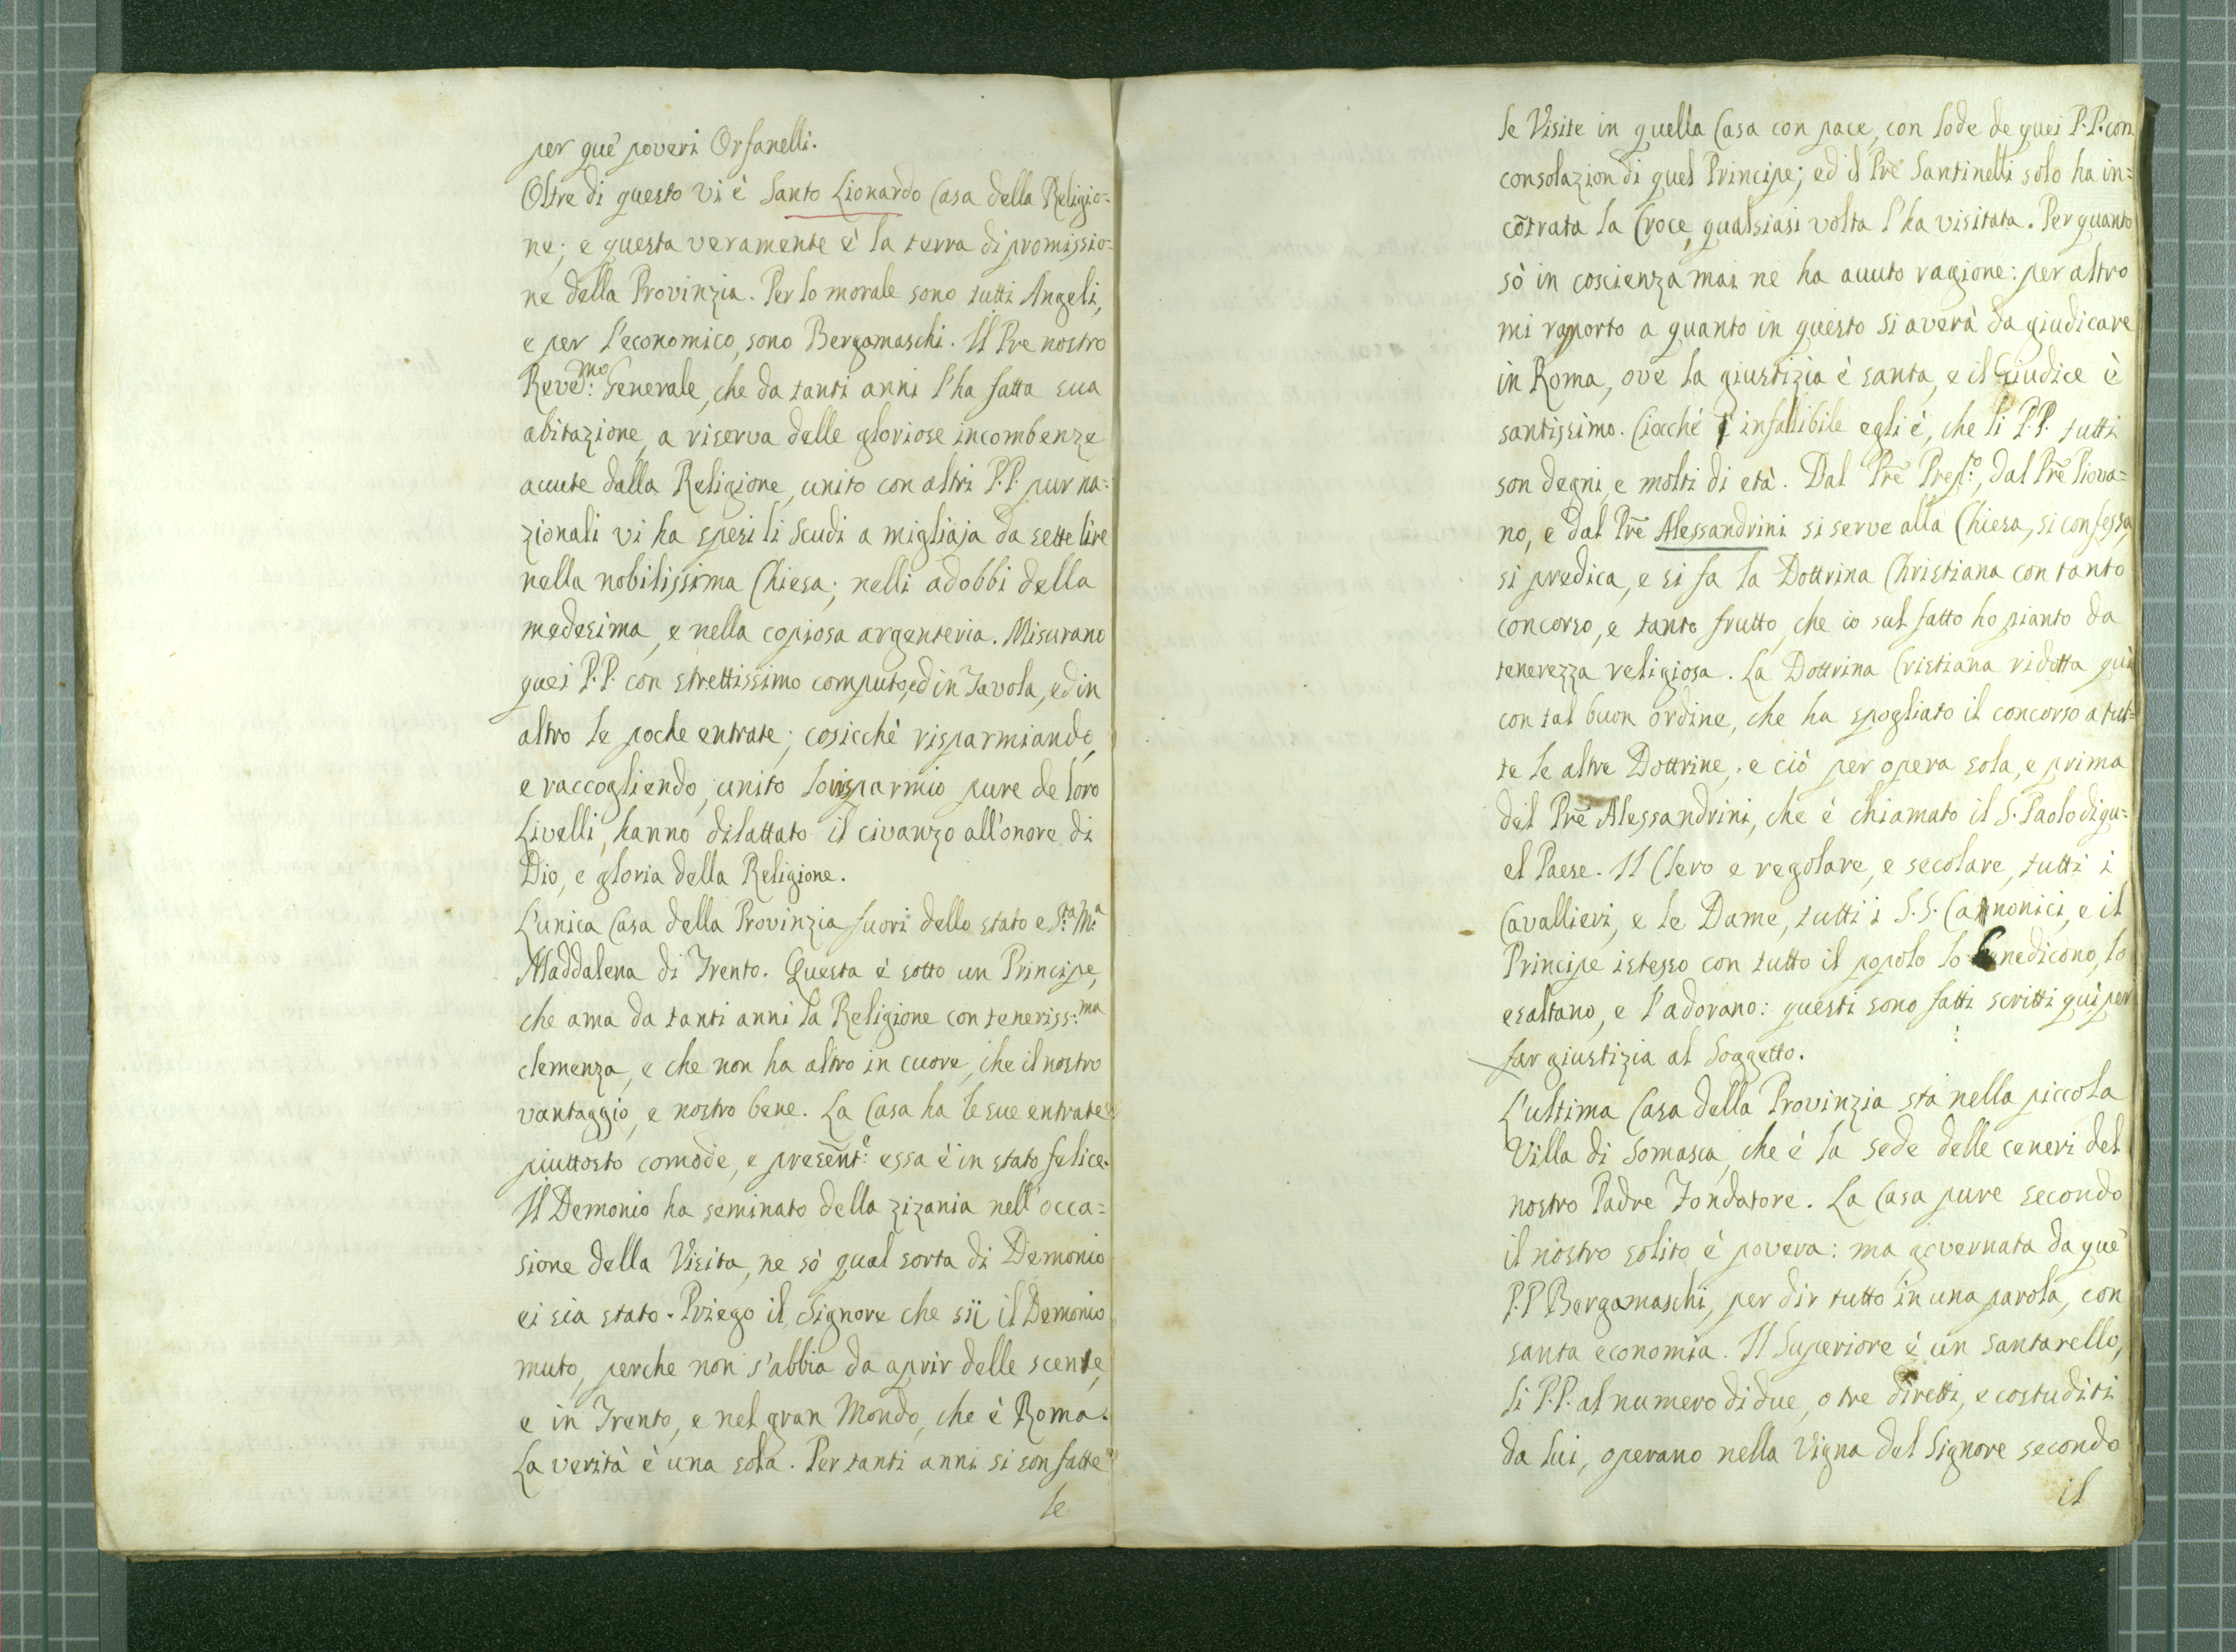 per què poveri Orfanelli.
Oltre di questo vi è Santo Lionardo Casa della Religio=
ne; e questa veramente è la terra di promissio=
ne della Provinzia. Per lo morale sono tutti Angeli,
e per l'economico, sono Bergamaschi. Il Pre nostro
Reve.mo Generale, che da tanti anni l'ha fatta sua
abitazione, a riserva delle gloriose incombenze
auute dalla Religione, unito con altri P.P. pur na=
zionali vi ha spesi li scudi a migliaja da sette lire
nella nobilissima Chiesa; nelli adobbi della
medesima, e nella copiosa argenteria. Misurano
quei P.P. con strettissimo computo, ed in Tavola, ed in
altro le poche entrate; cosicchè risparmiando,
e raccogliendo, unito lo risparmio pure de loro
Livelli, hanno dilattato il civanzo all'onore di
Dio, e gloria della Religione.
L'unica Casa della Provinzia fuori dello stato e S.ta M.a
Maddalena di Trento. Questa è sotto un Principe,
che ama da tanti anni la Religione con teneriss:ma
clemenza, e che non ha altro in cuore, che il nostro
vantaggio, e nostro bene. La Casa ha le sue entrate
piuttosto comode, e presēnt:e essa è in stato felice.
Il Demonio ha seminato della zizania nell'occa=
sione della Visita, ne sò qual sorta di Demonio
ei sia stato. Priego il Signore che sij il Demonio
muto, perche non s'abbia da aprir delle scene,
e in Trento, e nel gran Mondo, che è Roma.
La verità è una sola. Per tanti anni si son fatte
le
le Visite in quella Casa con pace, con lode de quei P.P. con
consolazion di quel Principe; ed il Prē Santinelli solo ha in=
cōtrata la Croce, qualsiasi volta l'ha visitata. Per quanto
sò in coscienza mai ne ha auuto ragione: per altro
mi raporto a quanto in questo si averà da giudicare
in Roma, ove la giustizia è santa, e il Giudice è
santissimo. Ciocchè è infallibile egli è, che li P.P. tutti
son degni, e molti di età. Dal Prē Prep:o, dal Prē Piova=
no, e dal Prē Alessandrini si serve alla Chiesa, si confessa,
si predica, e si fa la Dottrina Christiana con tanto
concorso, e tanto frutto, che io sul fatto ho pianto da
tenerezza religiosa. La Dottrina Cristiana ridotta quì
con tal buon ordine, che ha spogliato il concorso a tut=
te le altre Dottrine; e ciò per opera sola, e prima
del Prē Alessandrini, che è chiamato il S. Paolo di qu=
el Paese. Il Clero e regolare, e secolare, tutti i
Cavallieri, e le Dame, tutti i S.S. Canonici, e il
Principe istesso con tutto il popolo lo benedicono, lo
esaltano, e l'adorano: questi sono fatti scritti quì per
far giustizia al Soggetto.
L'ultima Casa della Provinzia stà nella piccola
Villa di Somasca, che è la sede delle ceneri del
nostro Padre Fondatore. La Casa pure secondo
il nostro solito è povera: ma governata da què
P.P Bergamaschi, per dir tutto in una parola, con
santa economia. Il Superiore è un Santarello,
li P.P. al numero di due, o tre diretti, e costuditi
da lui, operano nella Vigna del Signore secondo
il